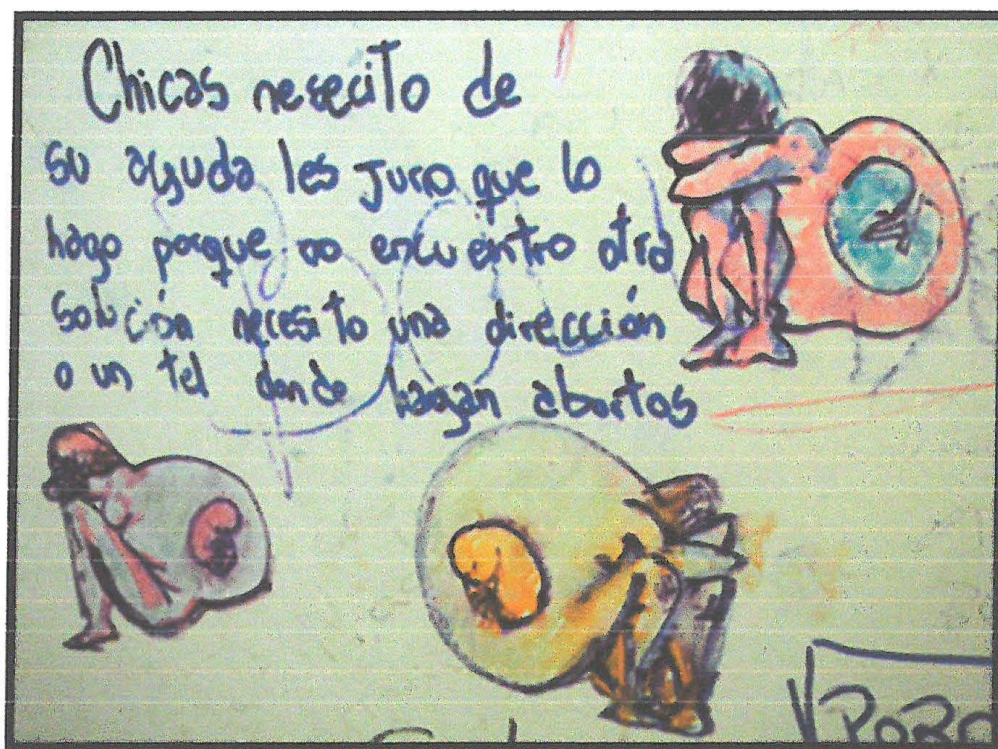 Chicas nesecito de
su ayuda les juro que lo
hago porque no encuentro otra
solución necesito una dirección
o un tel donde hagan abortos